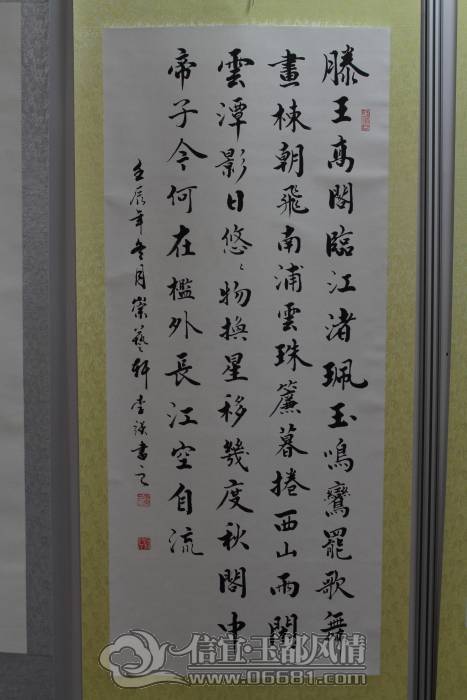 滕王高閣臨江渚珮玉鳴鸞罷歌舞
畫棟朝飛南浦雲珠簾暮捲西山雨閑
雲潭影日悠〻物換星移幾度秋閣中
帝子今何在檻外長江空自流
壬辰年冬月崇藝軒書之
信宜·玉都风情
www.06681.com